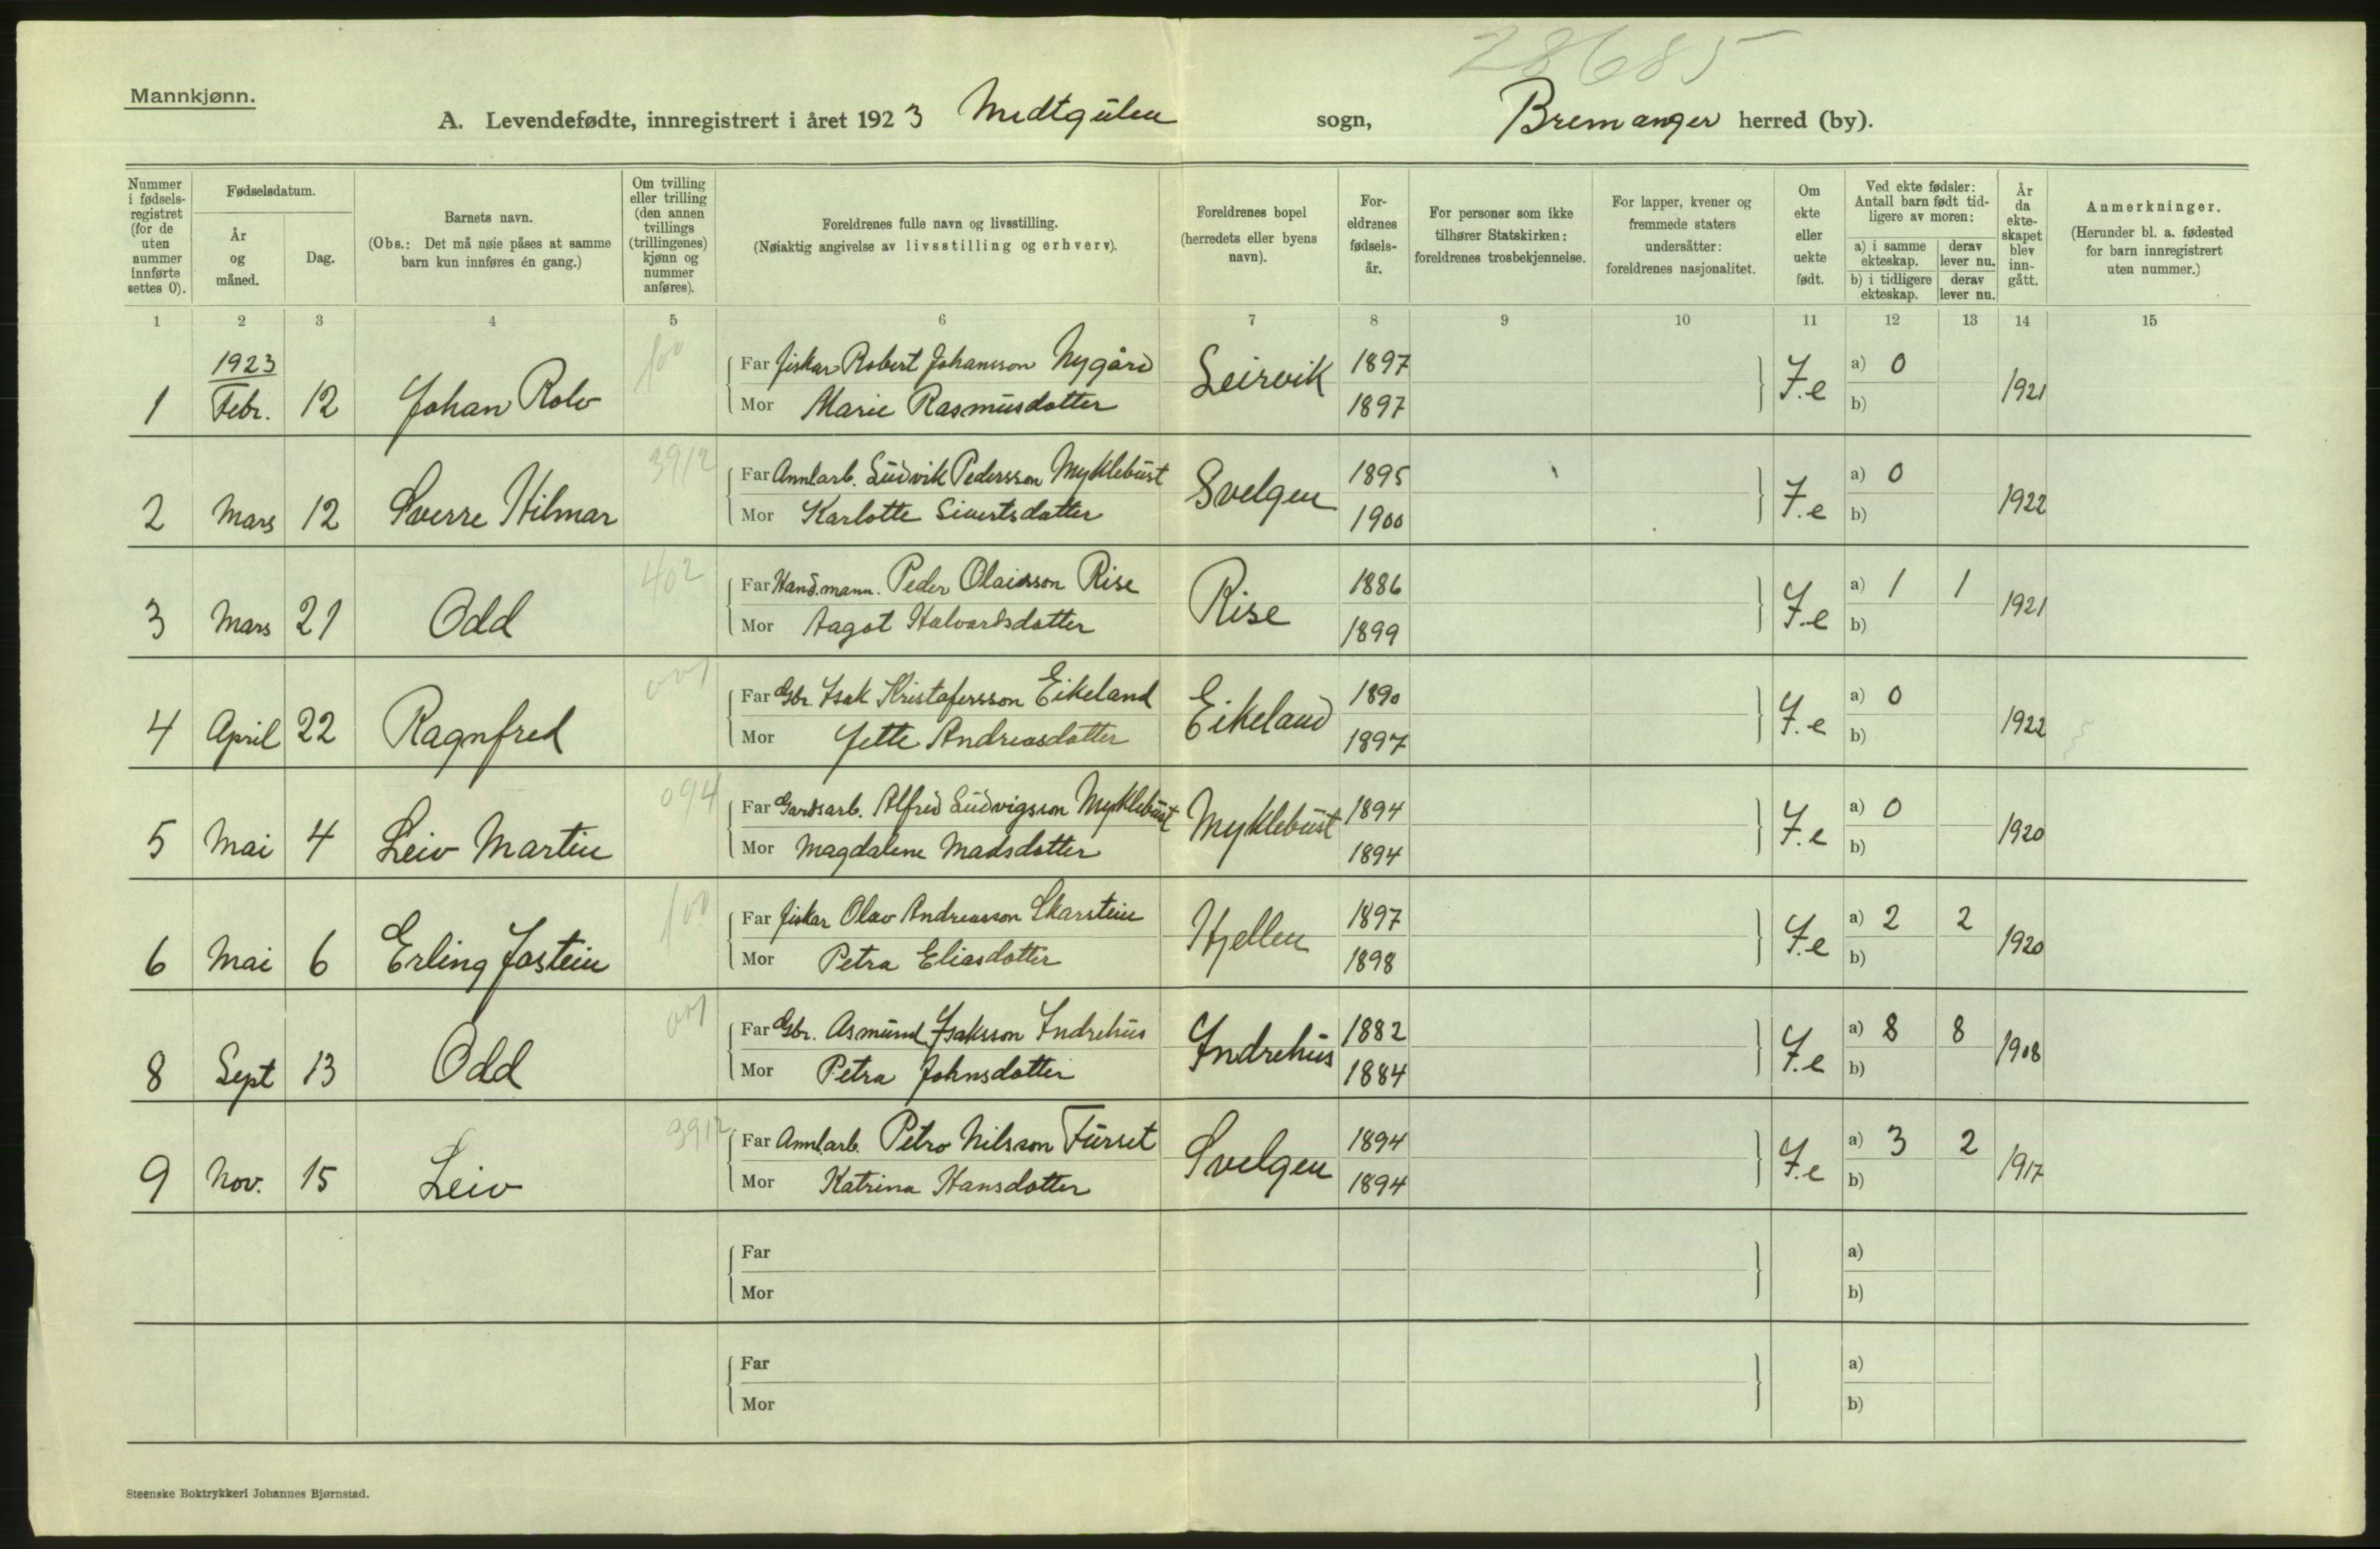 28685
Mannkjønn.
A. Levendefødte, innregistrert i året 1923 Midtgulen sogn, Bremanger herred (by).
Nummer i fødsels-registret (for de uten nummer innførte settes 0).
Fødselsdatum.
År og måned.
Dag.
Barnets navn.
(Obs.: Det må nøie påses at samme barn kun innføres én gang.)
Om tvilling eller trilling (den annen tvillings (trillingenes) kjønn og nummer anføres).
Foreldrenes fulle navn og livsstilling.
(Nøiaktig angivelse av livsstilling og erhverv).
Foreldrenes bopel (herredets eller byens navn).
For-eldrenes fødsels-år.
For personer som ikke tilhører Statskirken: foreldrenes trosbekjennelse.
For lapper, kvener og fremmede staters undersåtter: foreldrenes nasjonalitet.
Om ekte eller uekte født.
Ved ekte fødsler: Antall barn født tid-ligere av moren:
a) i samme ekteskap. derav lever nu.
b) i tidligere ekteskap. derav lever nu.
År da ekte-skapet blev inn-gått.
Anmerkninger.
(Herunder bl. a. fødested for barn innregistrert uten nummer.)
1 2 3 4 5 6 7 8 9 10 11 12 13 14 15
1 1923 Febr. 12 Johan Rolv 100 Far fiskar Robert Johansson Nygård Leirvik 1897 F.e a) 0 1921
Mor Marie Rasmusdotter 1897 b)
2 Mars 12 Sverre Hilmar 3912 Far Annl.arb. Ludvik Pedersson Myklebust Svelgen 1895 F.e a) 0 1922
Mor Karlotte Sivertsdatter 1900 b)
3 Mars 21 Odd 402 Far Hand.mann. Peder Olaisson Rise Rise 1886 F.e a) 1 1 1921
Mor Aagot Halvardsdotter 1899 b)
4 April 22 Ragnfred Far Gbr. Isak Kristofersson Eikeland Eikeland 1890 F.e a) 0 1922
Mor Jette Andreasdotter 1897 b)
5 Mai 4 Leiv Martin 094 Far Gardsarb. Alfred Ludvigsson Myklebust Myklebust 1894 F.e a) 0 1920
Mor Magdalene Madsdotter 1894 b)
6 Mai 6 Erling Jostein 100 Far fiskar Olav Andreasson Skarstein Hjellen 1897 F.e a) 2 2 1920
Mor Petra Eliasdotter 1898 b)
8 Sept 13 Odd Far Gbr. Asmund Isaksson Indrehus Indrehus 1882 F.e a) 8 8 1908
Mor Petra Johnsdotter 1884 b)
9 Nov. 15 Leiv 3912 Far Annl.arb. Petro Nilsson Furset Svelgen 1894 F.e a) 3 2 1917
Mor Katrina Hansdotter 1894 b)
Far a)
Mor b)
Far a)
Mor b)
Steenske Boktrykkeri Johannes Bjørnstad.